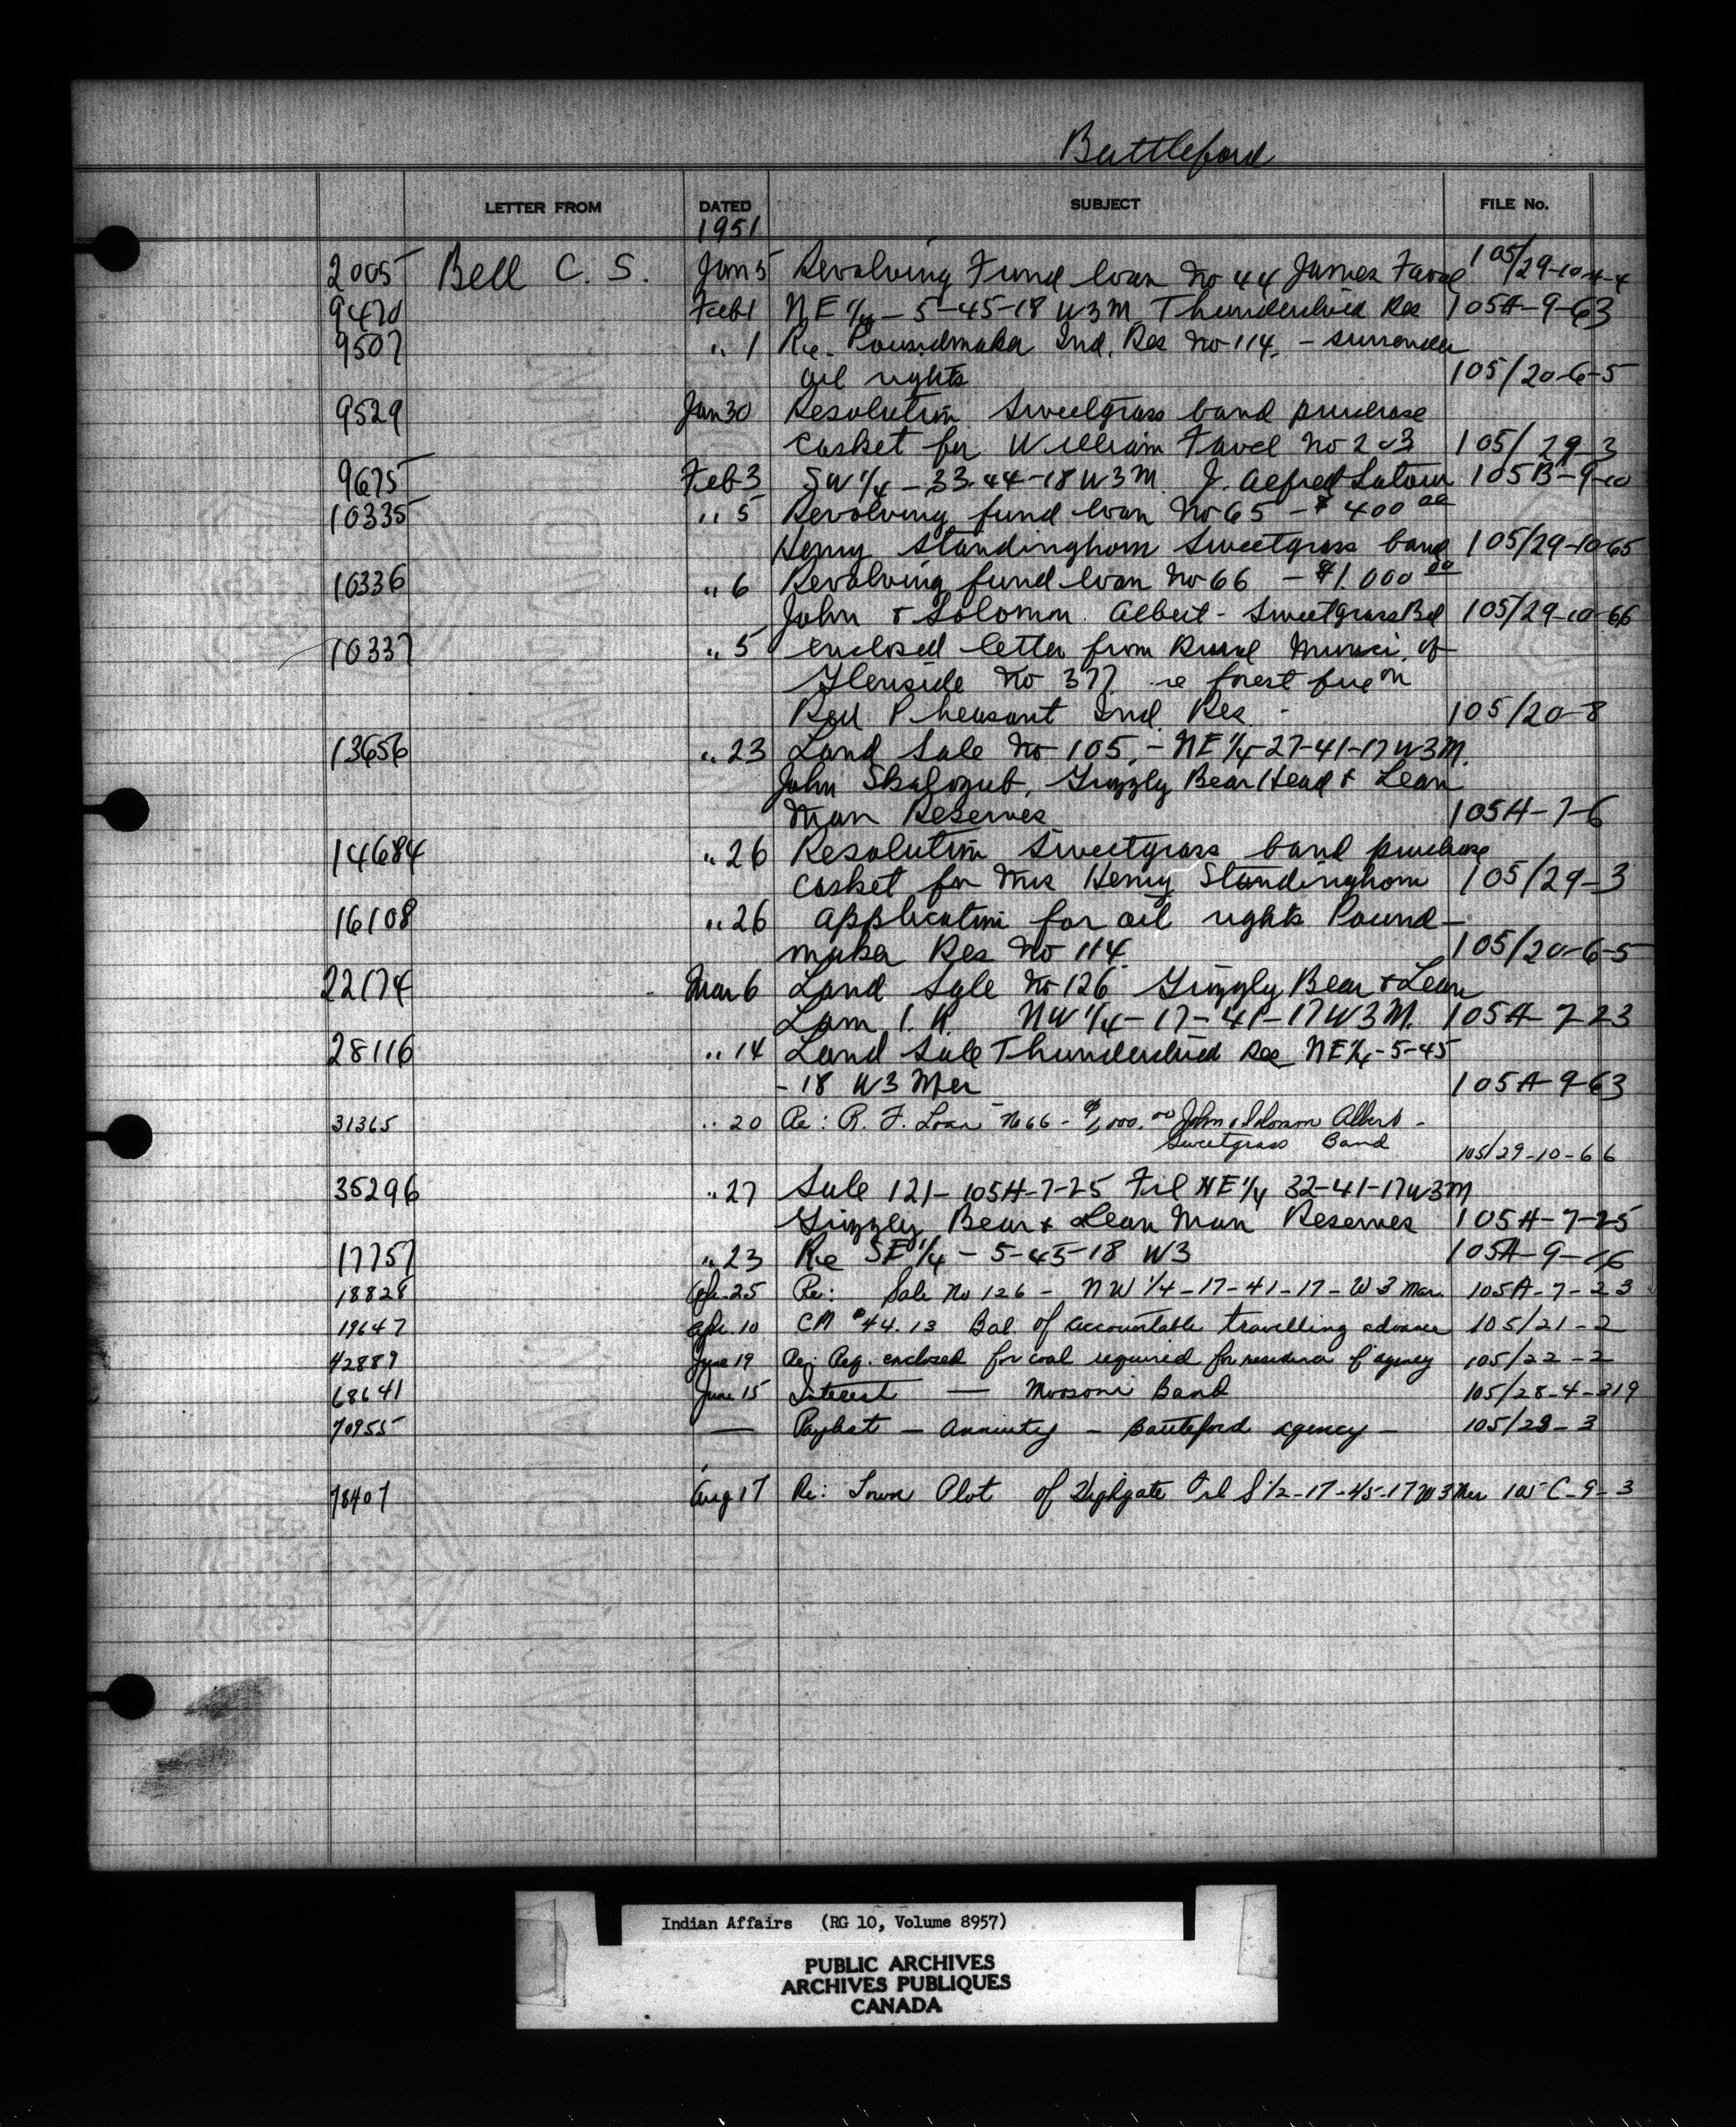 Battleford
LETTER FROM DATED SUBJECT FILE No.
1951
2005 Bell C. S. Jan 5 Revolving Fund loan No 44 James Favel 105/29-10-4-4
9470 Feb 1 NE 1/4 - 5-45-18 W3M Thunderchild Res 105A-9-63
9507 " 1 Re. Poundmaker Ind. Res No 114. - surrender
oil rights 105/20-6-5
9529 Jan 30 Resolution Sweetgrass band purchase
casket for William Favel No 203 105/29-3
9675 Feb 3 SW 1/4 - 33-44-18 W3M J. Alfred Latour 105B-9-10
10335 " 5 Revolving fund loan No 65 - $400 00
Henry Standinghorn Sweetgrass band 105/29-10-65
10336 " 6 Revolving fund loan No 66 - $1,000 00
John & Solomon Albert - Sweetgrass Bd 105/29-10-66
10337 " 5 enclosed letter from Rural Munici. of
Glenside No 377 re forest fire on
Red Pheasant Ind. Res - 105/20-8
13656 " 23 Land Sale No 105, - NE 1/4-27-41-17 W3M.
John Skalozub, Grizzly Bear Head & Lean
Man Reserves 105A-7-6
14684 " 26 Resolution Sweetgrass band purchase
casket for Mrs Henry Standinghorn 105/29-3
16108 " 26 application for oil rights Pound-
maker Res No 114 105/20-6-5
22174 Mar 6 Land Sale No 126 Grizzly Bear & Lean
Lam I. R. NW 1/4-17-41-17 W3M. 105A-7-23
28116 " 14 Land Sale Thunderchild Res NE 1/4-5-45
-18 W3 Mer 105A-9-63
31365 " 20 Re: R. F. Loan No 66 - $1,000.00 John & Solomon Albert -
Sweetgrass Band 105/29-10-66
35296 " 27 Sale 121- 105A-7-25 Frl NE 1/4 32-41-17 W3M
Grizzly Bear & Lean Man Reserves 105A-7-25
17757 " 23 Re SE 1/4 - 5-45-18 W3 105A-9-
18828 Apr. 25 Re: Sale No 126 - NW 1/4-17-41-17-W3 Mer. 105A-7-23
19647 Apr. 10 CM $44.13 Bal. of accountable travelling advance 105/21-2
42889 June 19 Re: Req. enclosed for coal required for residence & agency 105/22-2
68641 June 15 Interest — Moosomin Band 105/28-4-319
70955 — Paylist - Annuity - Battleford agency - 105/28-3
78407 Aug 17 Re: Town Plot of Highgate Frl S 1/2-17-45-17 W3 Mer 105C-9-3
Indian Affairs (RG 10, Volume 8957)
PUBLIC ARCHIVES
ARCHIVES PUBLIQUES
CANADA